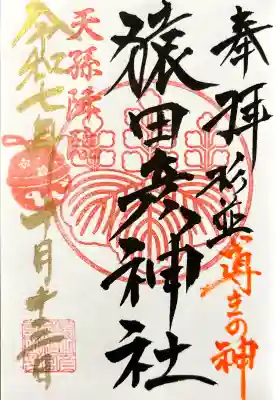 奉拝
杉並
導きの神
猿田彦神社
天孫降臨
令和七年十一月十三日